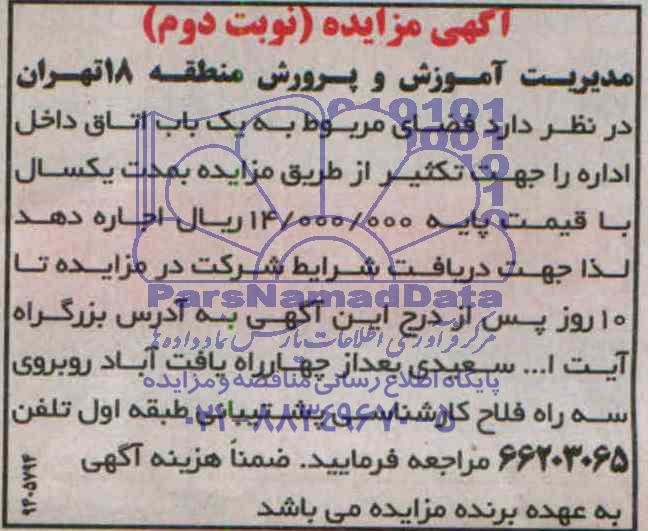 آگهی مزایده (نوبت دوم)
مدیریت آموزش و پرورش منطقه ۱۸تهران
در نظر دارد فضای مربوط به یک باب اتاق داخل
اداره را جهت تکثیر از طریق مزایده بمدت یکسال
با قیمت پایه ۱۴/۰۰۰/۰۰۰ ریال اجاره دهد
لذا جهت دریافت شرایط شرکت در مزایده تا
۱۰روز پس از درج این آگهی به آدرس بزرگراه
آیت ا... سعیدی بعداز چهارراه یافت آباد روبروی
سه راه فلاح کارشناسی پشتیبانی طبقه اول تلفن
۶۶۲۰۳۰۶۵ مراجعه فرمایید. ضمناً هزینه آگهی
به عهده برنده مزایده می باشد
۹۴۰۵۷۹۴
ParsNamadData
مرکز فرآوری اطلاعات پارس نماد داده ها
پایگاه اطلاع رسانی مناقصه و مزایده
۰۲۱-۸۸۳۴۹۶۷۰-۵